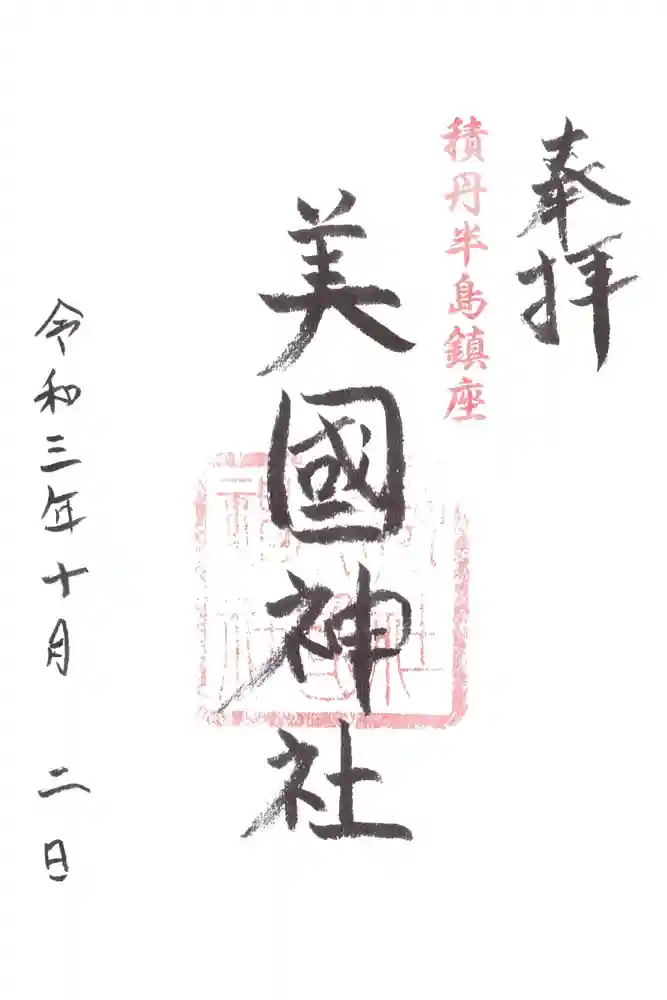 奉拝
積丹半島鎮座
美國神社
令和三年十月 二日